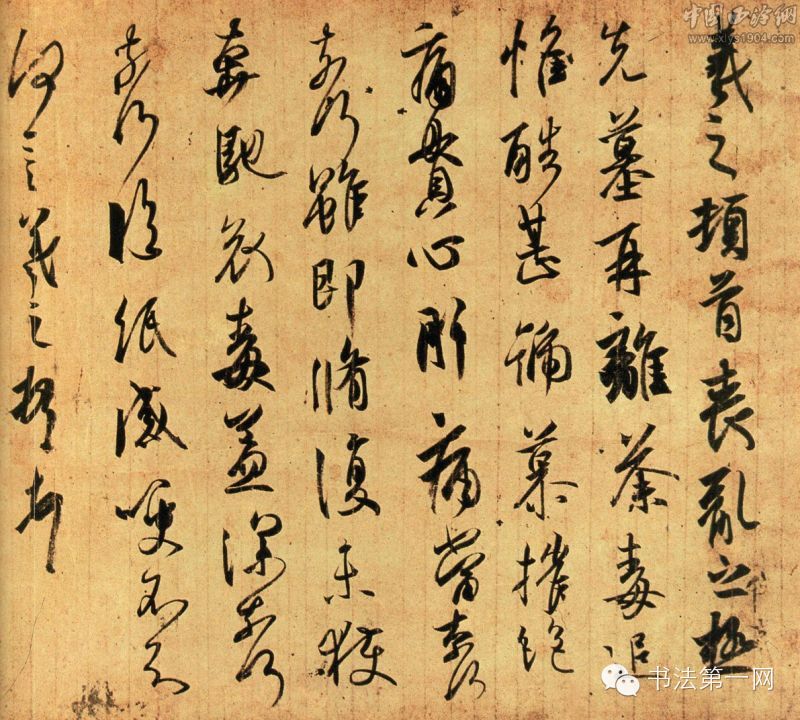 中國西泠網
www.xlys1904.com
羲之頓首喪亂之極
先墓再離荼毒追
惟酷甚號慕摧絕
痛貫心肝痛當奈何
奈何雖即脩復未獲
奔馳哀毒益深奈何
奈何臨紙感哽不知
何言羲之頓首頓首
书法第一网